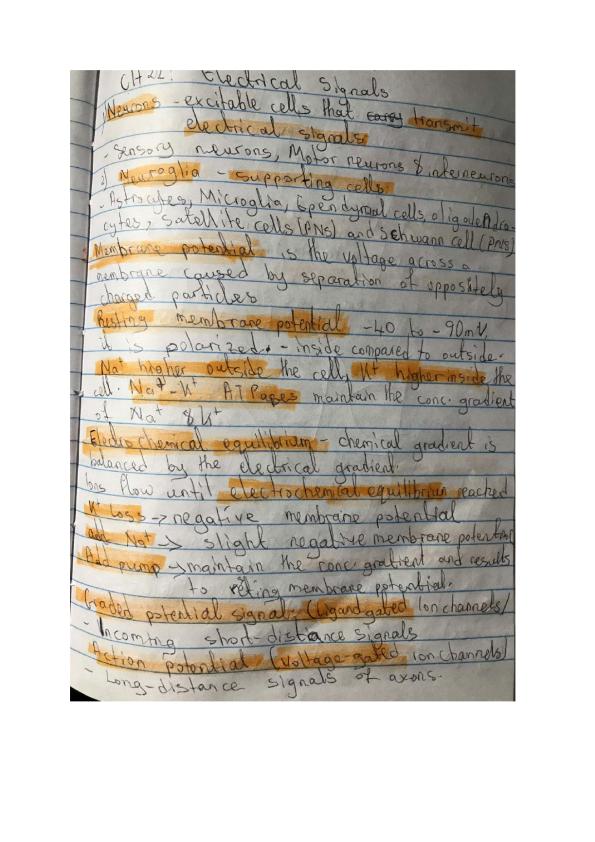 CH 22: Electrical Signals
1) Neurons - excitable cells that carry transmit
electrical signals
- Sensory neurons, Motor neurons & interneurons
2) Neuroglia - supporting cells.
- Astrocytes, Microglia, Ependymal cells, oligodendro-
cytes, Satellite cells (PNS) and Schwann cell (PNS)
Membrane potential is the voltage across a
membrane caused by separation of oppositely
charged particles
Resting membrane potential -40 to -90mV,
it is polarized. - inside compared to outside.
Na+ higher outside the cell, K+ higher inside the
cell. Na+ - K+ ATPases maintain the conc. gradient
of Na+ & K+
Electrochemical equilibrium - chemical gradient is
balanced by the electrical gradient.
Ions flow until electrochemical equilibrium reached
K+ Loss -> negative membrane potential
add Na+ -> slight negative membrane potential
Add pump -> maintain the conc. gratient and results
to reting membrane potential.
Graded potential signals (Ligand gated Ion channels)
- Incoming short-distance signals
Action potential (voltage-gated ion channels)
- Long-distance signals of axons.